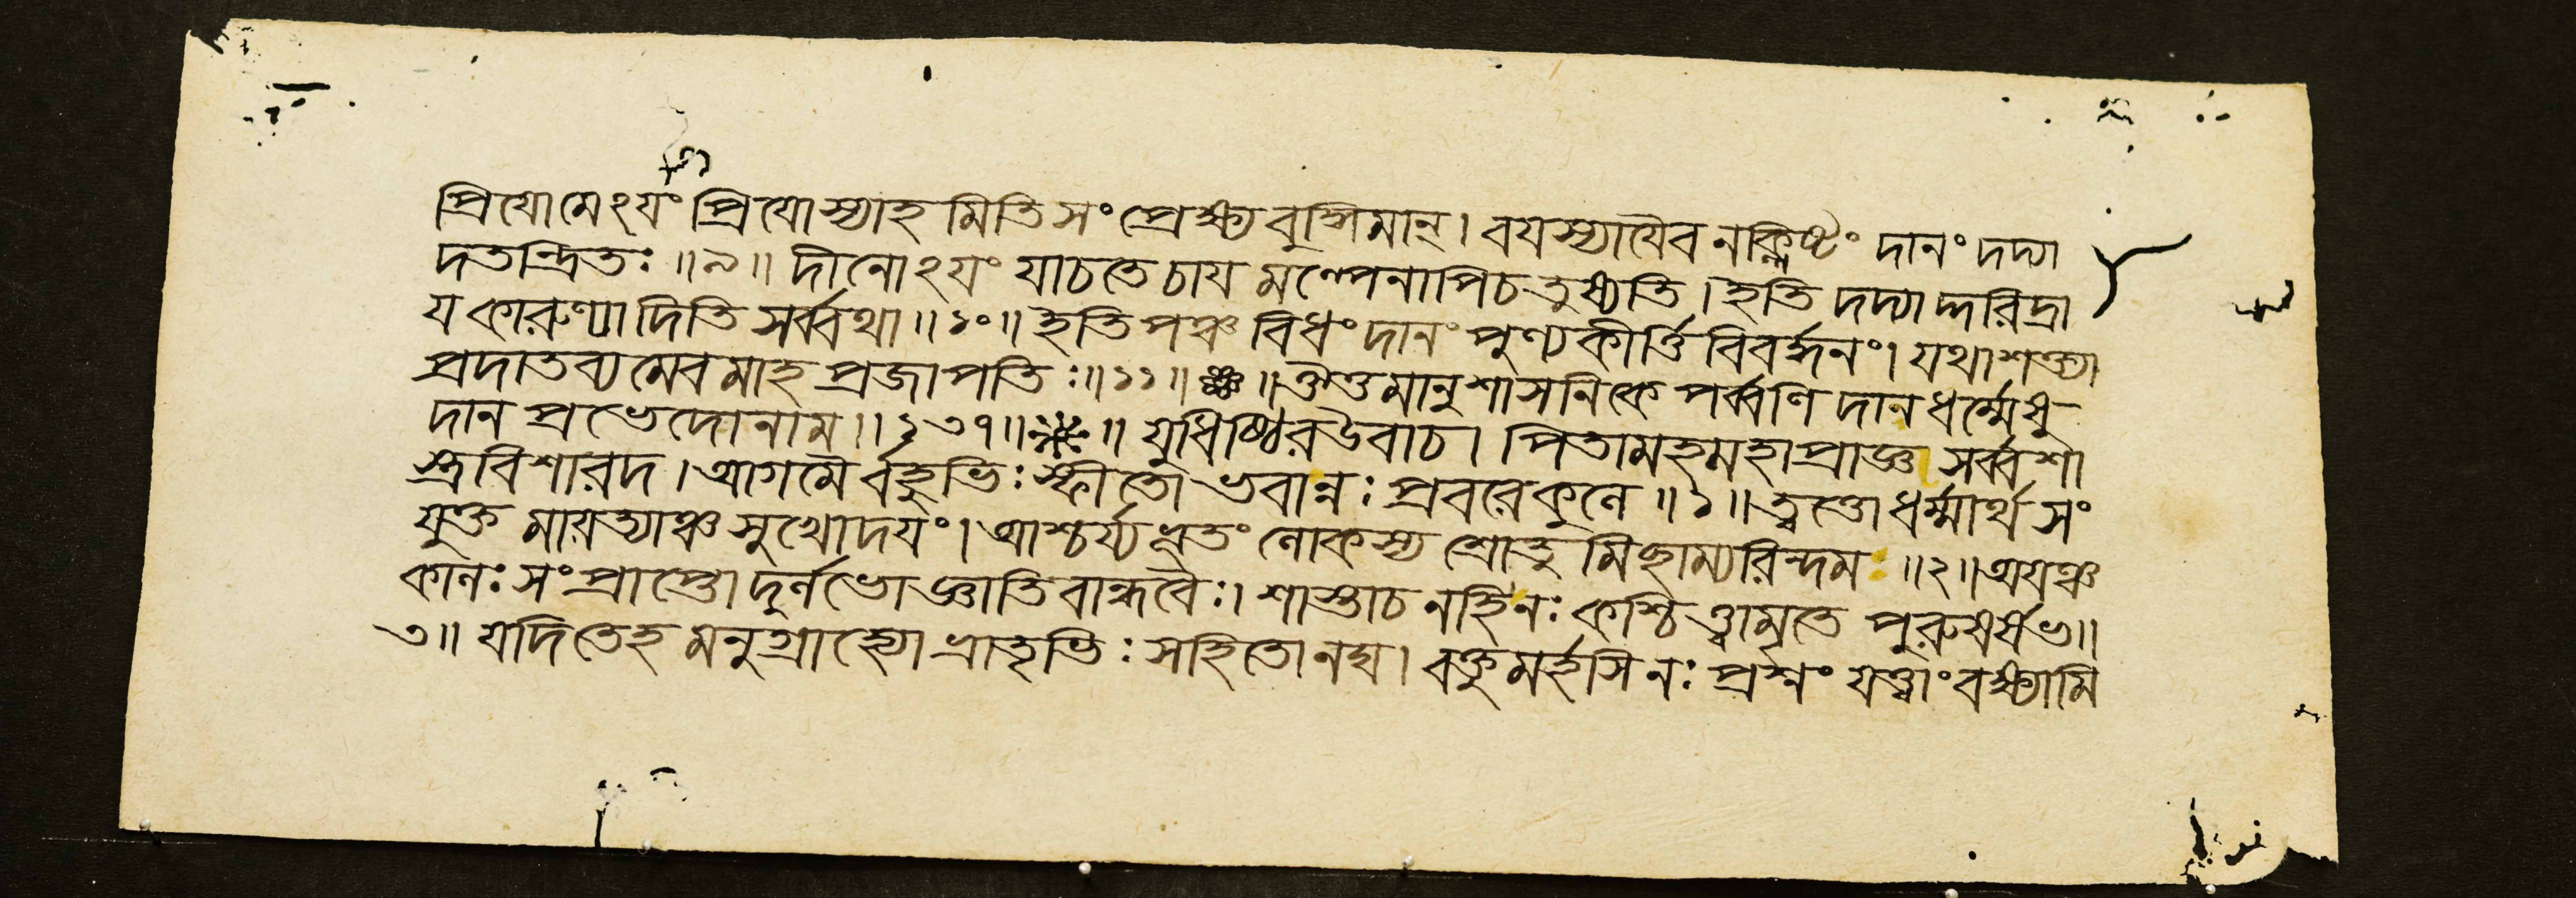 প্রিযোমেঽযং প্রিযোস্যাহমিতিসংপ্রেক্ষ্যবুদ্ধিমান্। বযস্যাযৈবনক্লিষ্টং দানং দদ্যা
দতন্দ্রিতঃ॥৯॥ দীনোঽযং যাচতে চায মল্পেনাপিচতুষ্যতি। ইতি দদ্যাদ্দরিদ্রা
যকারুণ্যাদিতি সর্ব্বথা॥১০॥ ইতিপঞ্চবিধং দানং পুণ্যকীর্ত্তিবিবর্দ্ধনং। যথাশক্ত্যা
প্রদাতব্যমেবমাহ প্রজাপতিঃ॥১১॥ ❈॥ ঔত্তমানুশাসনিকে পর্ব্বণি দানধর্ম্মেষু
দান প্রভেদোনাম॥১৩৭॥ ❈॥ যুধিষ্ঠিরউবাচ। পিতামহমহাপ্রাজ্ঞ সর্ব্বশা
স্ত্রবিশারদ। আগমৈর্বহুভিঃ স্ফীতো ভবান্নঃ প্রবরেকুলে॥১॥ ত্বত্তোধর্ম্মার্থসং
যুক্ত মাযত্যাঞ্চসুখোদযং। আশ্চর্য্যভূতং লোকস্য শ্রোতুমিছাম্যরিন্দম॥২॥ অযঞ্চ
কালঃ সংপ্রাপ্তো দুর্লভোজ্ঞাতিবান্ধবৈঃ। শাস্তাচ নহিনঃ কশ্চিত্ত্বামৃতে পুরুষর্ষভ॥
৩॥ যদিতেহমনুগ্রাহ্যো ভ্রাতৃভিঃ সহিতোনঘ। বক্তুমর্হসিনঃ প্রশ্নং যত্ত্বাং বক্ষ্যামি